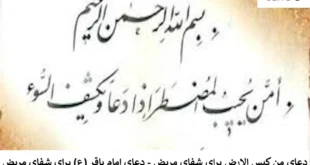 بسم الله الرحمن الرحیم
أمّن یُجیبُ المُضطَرّ اِذا دَعا وَیَکشِفُ السُّوءَ
دعای من کبس الارض برای شفای مریض - دعای امام باقر (ع) برای شفای مریض